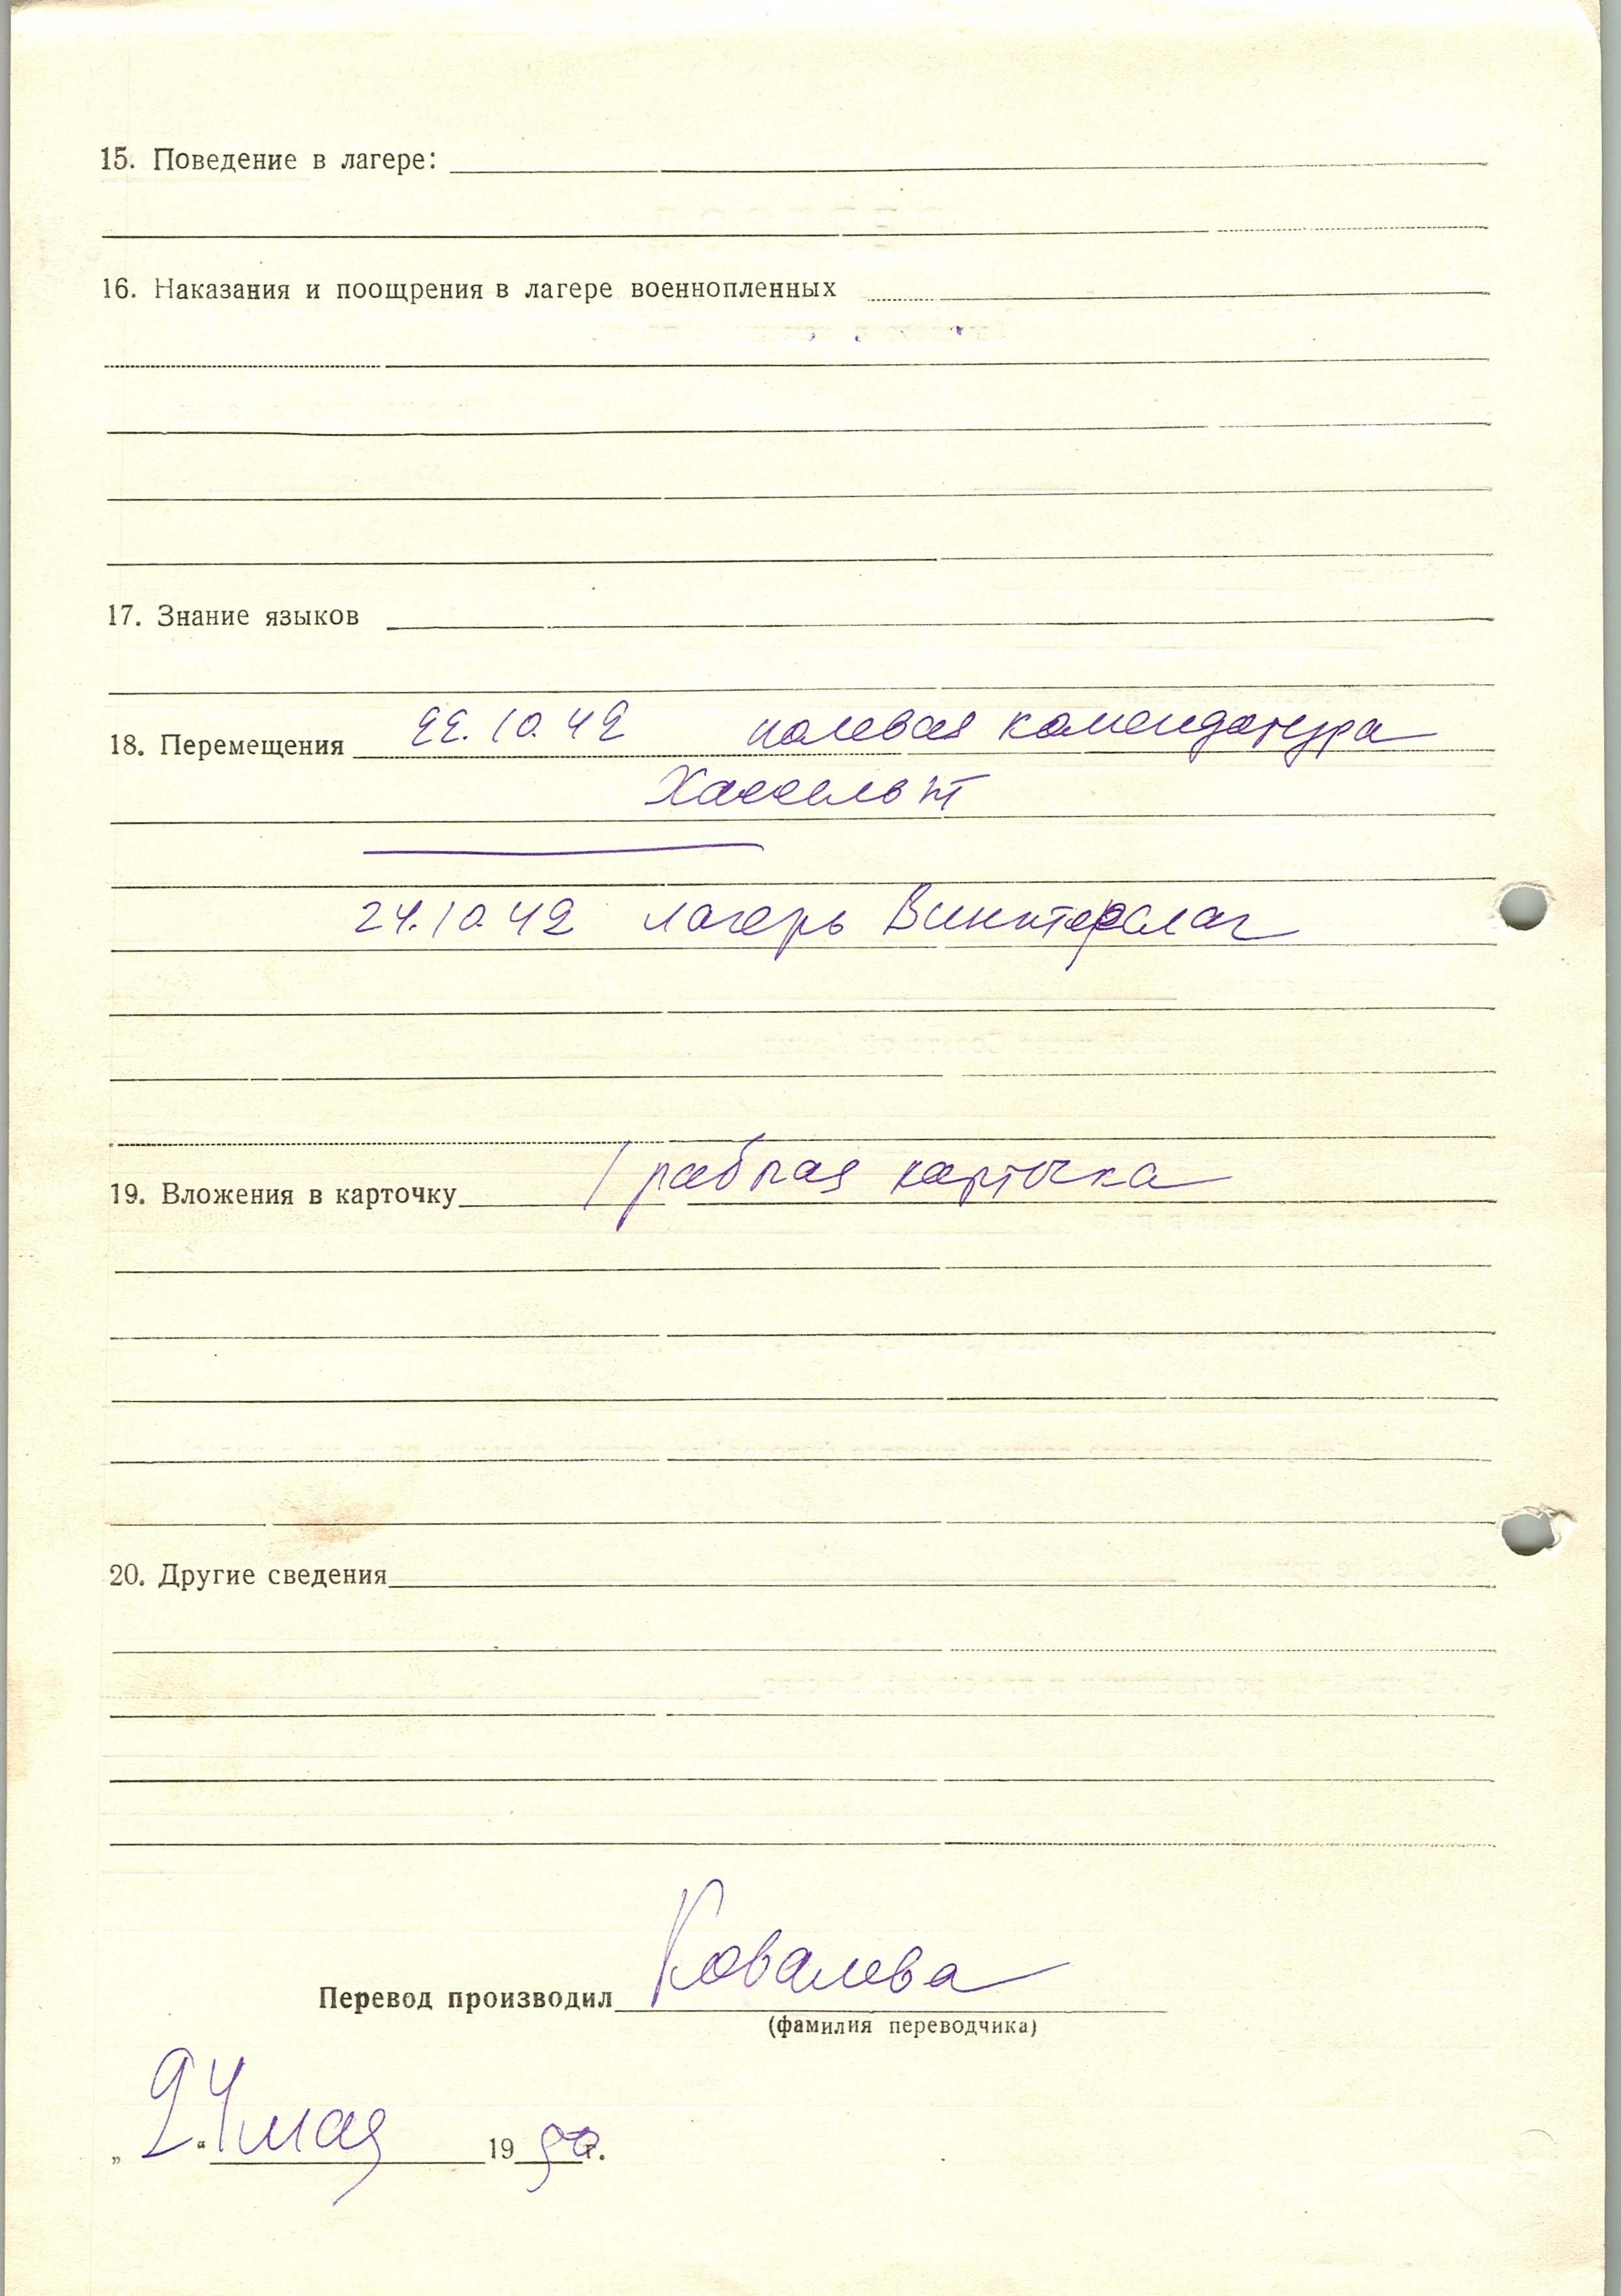 15. Поведение в лагере:
16. Наказания и поощрения в лагере военнопленных
17. Знание языков
18. Перемещения 22.10.42 полевая комендатура
Хассельт
24.10.42 лагерь Винтерслаг
19. Вложения в карточку 1 рабочая карточка
20. Другие сведения
Перевод производил Ковалева
(фамилия переводчика)
„24“ мая 1950 г.